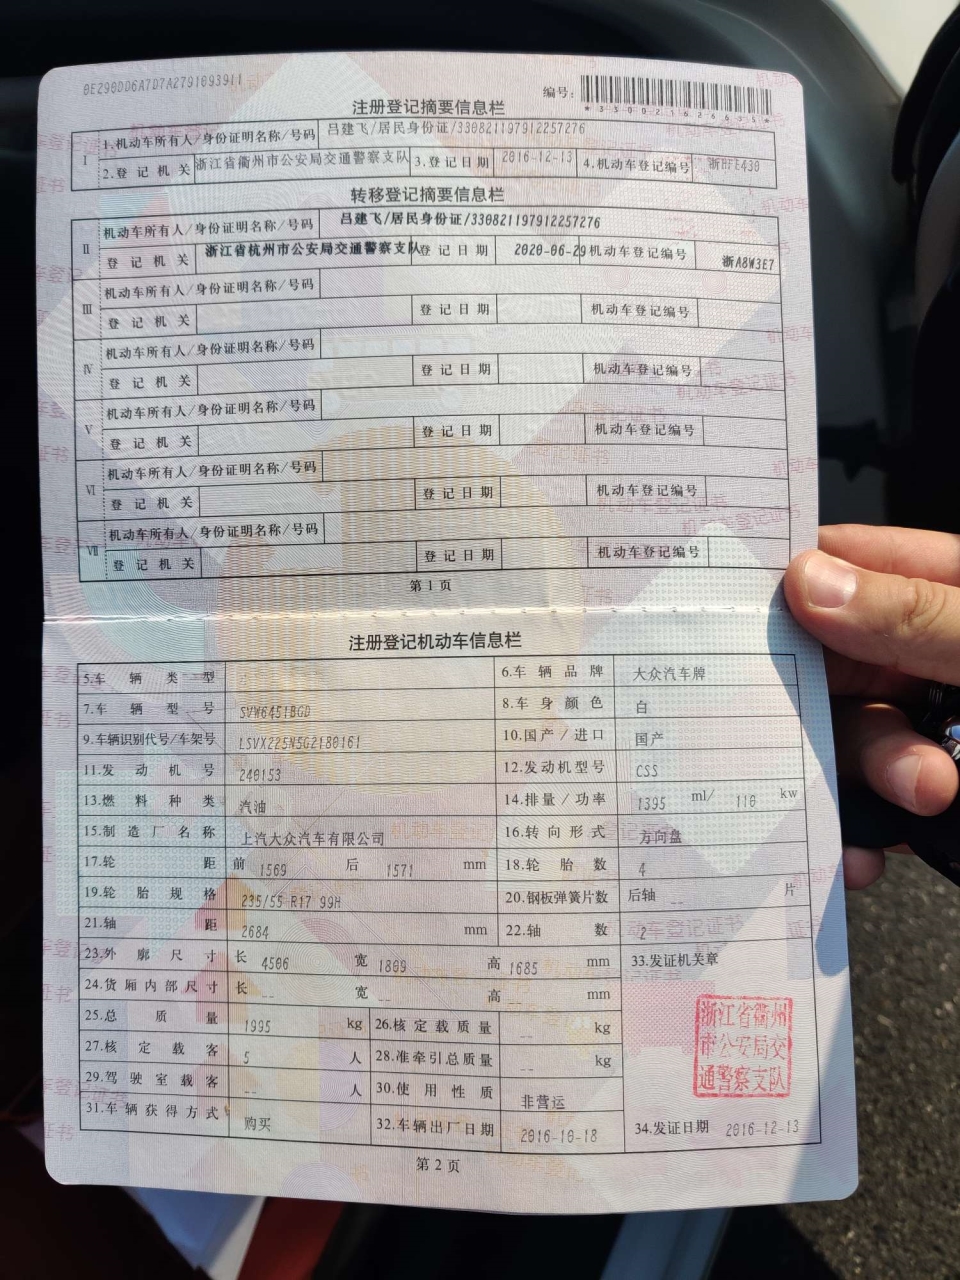 0E290DD6A7D7A2791093911
编号：
*330021626635*
注册登记摘要信息栏
I 1.机动车所有人/身份证明名称/号码 吕建飞/居民身份证/330821197912257276
2.登记机关 浙江省衢州市公安局交通警察支队 3.登记日期 2016-12-13 4.机动车登记编号 浙HFE430
转移登记摘要信息栏
II 机动车所有人/身份证明名称/号码 吕建飞/居民身份证/330821197912257276
登记机关 浙江省杭州市公安局交通警察支队 登记日期 2020-06-29 机动车登记编号 浙A8W3E7
III 机动车所有人/身份证明名称/号码
登记机关 登记日期 机动车登记编号
IV 机动车所有人/身份证明名称/号码
登记机关 登记日期 机动车登记编号
V 机动车所有人/身份证明名称/号码
登记机关 登记日期 机动车登记编号
VI 机动车所有人/身份证明名称/号码
登记机关 登记日期 机动车登记编号
VII 机动车所有人/身份证明名称/号码
登记机关 登记日期 机动车登记编号
第1页
注册登记机动车信息栏
5.车辆类型 6.车辆品牌 大众汽车牌
7.车辆型号 SVW6451BGD 8.车身颜色 白
9.车辆识别代号/车架号 LSVX225N5G2180161 10.国产/进口 国产
11.发动机号 240153 12.发动机型号 CSS
13.燃料种类 汽油 14.排量/功率 1395 ml/ 110 kw
15.制造厂名称 上汽大众汽车有限公司 16.转向形式 方向盘
17.轮距 前 1569 后 1571 mm 18.轮胎数 4
19.轮胎规格 235/55 R17 99H 20.钢板弹簧片数 后轴 -- 片
21.轴距 2684 mm 22.轴数 2
23.外廓尺寸 长 4506 宽 1809 高 1685 mm 33.发证机关章
24.货厢内部尺寸 长 -- 宽 -- 高 -- mm
25.总质量 1995 kg 26.核定载质量 -- kg
27.核定载客 5 人 28.准牵引总质量 -- kg
29.驾驶室载客 -- 人 30.使用性质 非营运
31.车辆获得方式 购买 32.车辆出厂日期 2016-10-18 34.发证日期 2016-12-13
浙江省衢州
市公安局交
通警察支队
第2页